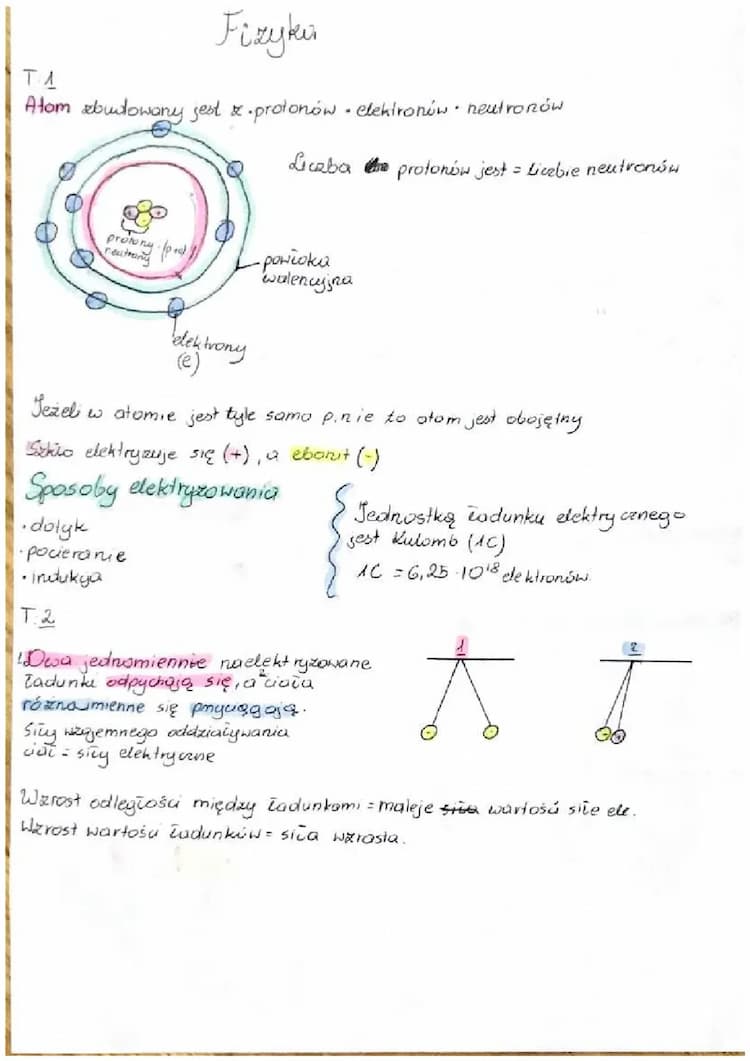 Fizyka
T.1
Atom zbudowany jest z • protonów • elektronów • neutronów
Liczba protonów jest = liczbie neutronów
protony
neutrony
powłoka
walencyjna
elektrony
(e)
Jeżeli w atomie jest tyle samo p. n i e to atom jest obojętny
Szkło elektryzuje się (+), a ebonit (-)
Sposoby elektryzowania
• dotyk
• pocieranie
• indukcja
Jednostką ładunku elektrycznego
jest Kulomb (1C)
1C = 6,25 · 10¹⁸ elektronów
T.2
1 Dwa jednomiennie naelektryzowane
ładunki odpychają się, a ² ciała
różnoimienne się przyciągają.
Siły wzajemnego oddziaływania
ciał = siły elektryczne
1
2
Wzrost odległości między ładunkami = maleje siła wartość siłe ele.
Wzrost wartości ładunków = siła wzrasta.